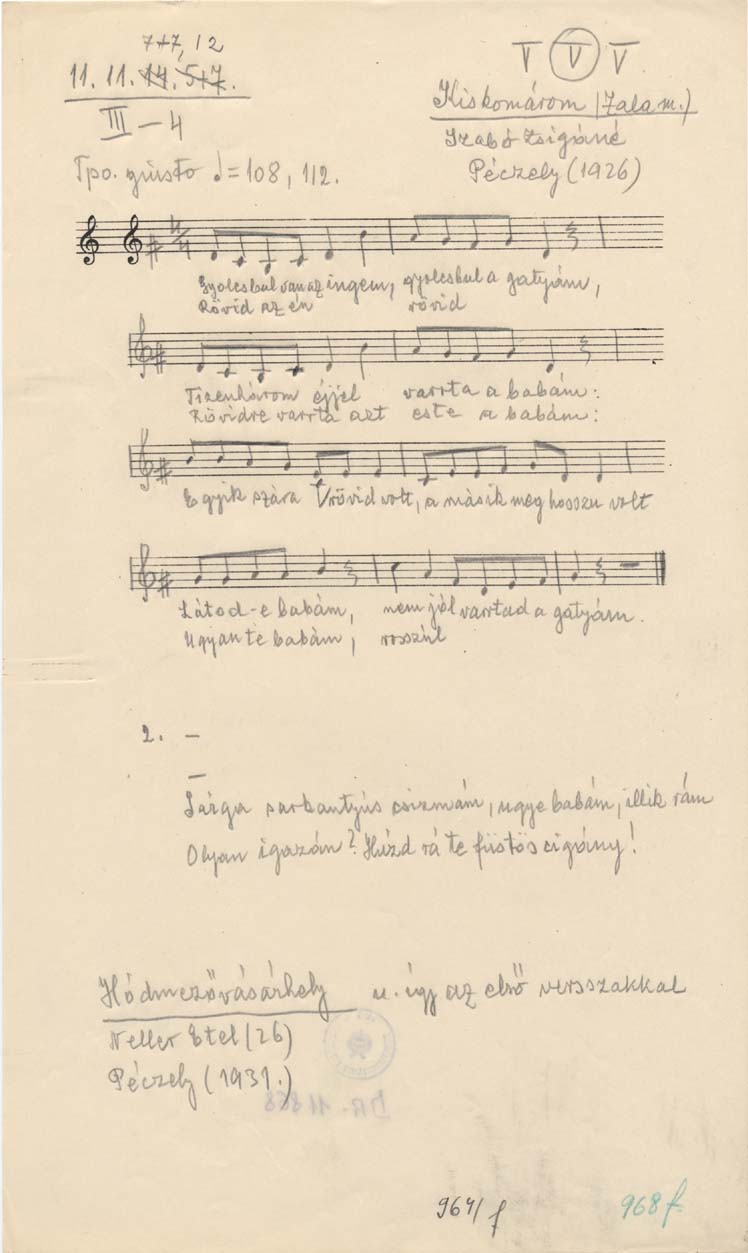 7+7, 12
11. 11. 14. 5+7.
III – 4
V V V
Kiskomárom (Zala m.)
Szabó Zsigáné
Péczely (1926)
Tpo. giusto ♩ = 108, 112.
4/4
Gyolcsbul van az ingem, gyolcsbul a gatyám,
Rövid az én rövid
Tizenhárom éjjel varrta a babám:
Rövidre varrta azt este a babám:
Egyik szára rövid volt, a másik meg hosszu volt
Látod-e babám, nem jól varrtad a gatyám.
Ugyan te babám, rosszúl
2. –
–
Sárga sarkantyús csizmám, ugye babám, illik rám
Olyan igazán? Húzd rá te füstös cigány!
Hódmezővásárhely u. így az első versszakkal
Neller Etel (26)
Péczely (1931.)
968 f.